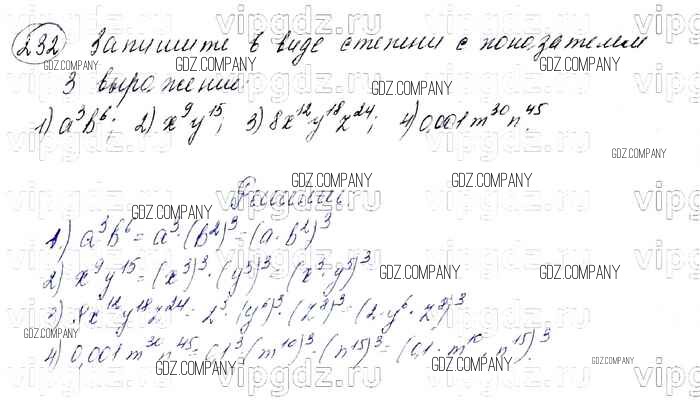 232 Запишите в виде степени с показателем
3 выражение:
1) a³b⁶; 2) x⁹y¹⁵; 3) 8x¹²y¹⁸z²⁴; 4) 0,001m³⁰n⁴⁵.
Решение
1) a³b⁶ = a³·(b²)³ = (a·b²)³
2) x⁹y¹⁵ = (x³)³·(y⁵)³ = (x³·y⁵)³
3) 8x¹²y¹⁸z²⁴ = 2³·(y⁶)³·(z⁸)³ = (2·y⁶·z⁸)³
4) 0,001m³⁰n⁴⁵ = 0,1³·(m¹⁰)³·(n¹⁵)³ = (0,1·m¹⁰·n¹⁵)³
GDZ.COMPANY
vipgdz.ru